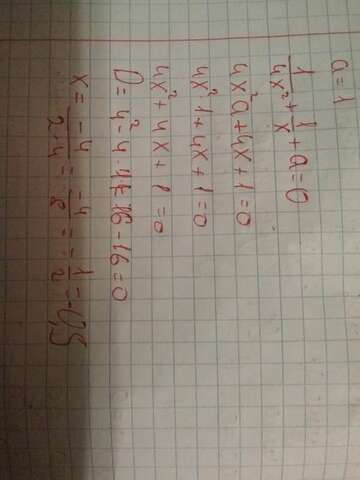 a=1
1/4x² + 1/x + a = 0
4x²a + 4x + 1 = 0
4x²1 + 4x + 1 = 0
4x² + 4x + 1 = 0
D = 4² - 4·4·1 = 16 - 16 = 0
x = -4/2·4 = -4/8 = -1/2 = -0,5